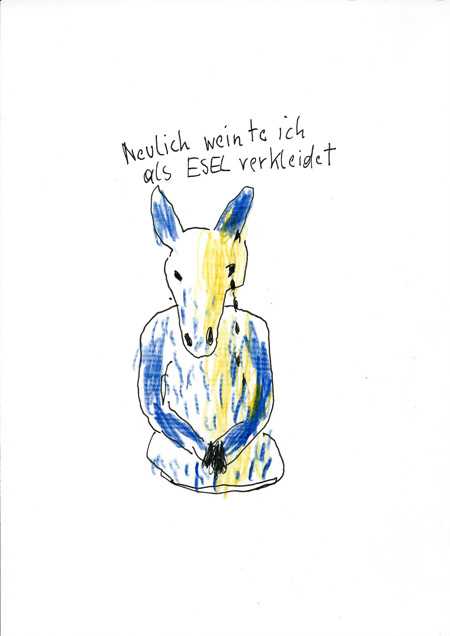 Neulich weinte ich
als ESEL verkleidet